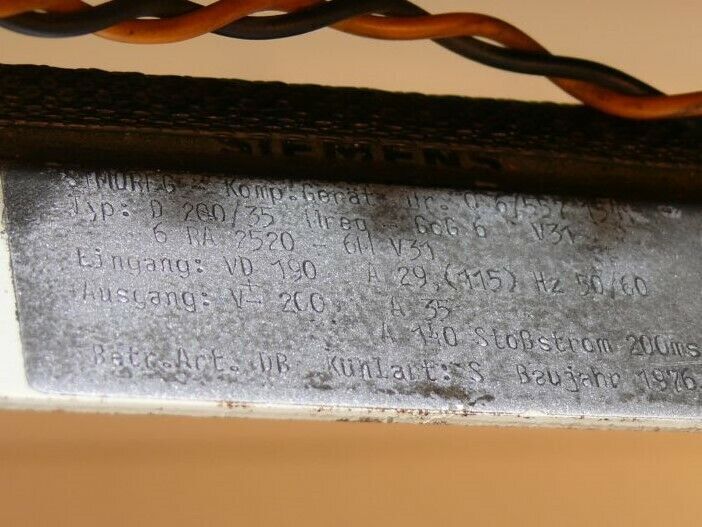 SIEMENS
SIMOREG - Komp.Gerät Nr. Q 6/557
Typ: D 200/35 Mreq - GcG 6 V31
6 RA 2520 - 6 V31
Eingang: VD 190 A 29,(115) Hz 50/60
Ausgang: V 200 A 35
A 140 Stoßstrom 200ms
Betr.Art. DB Kühlart: S Baujahr 1976